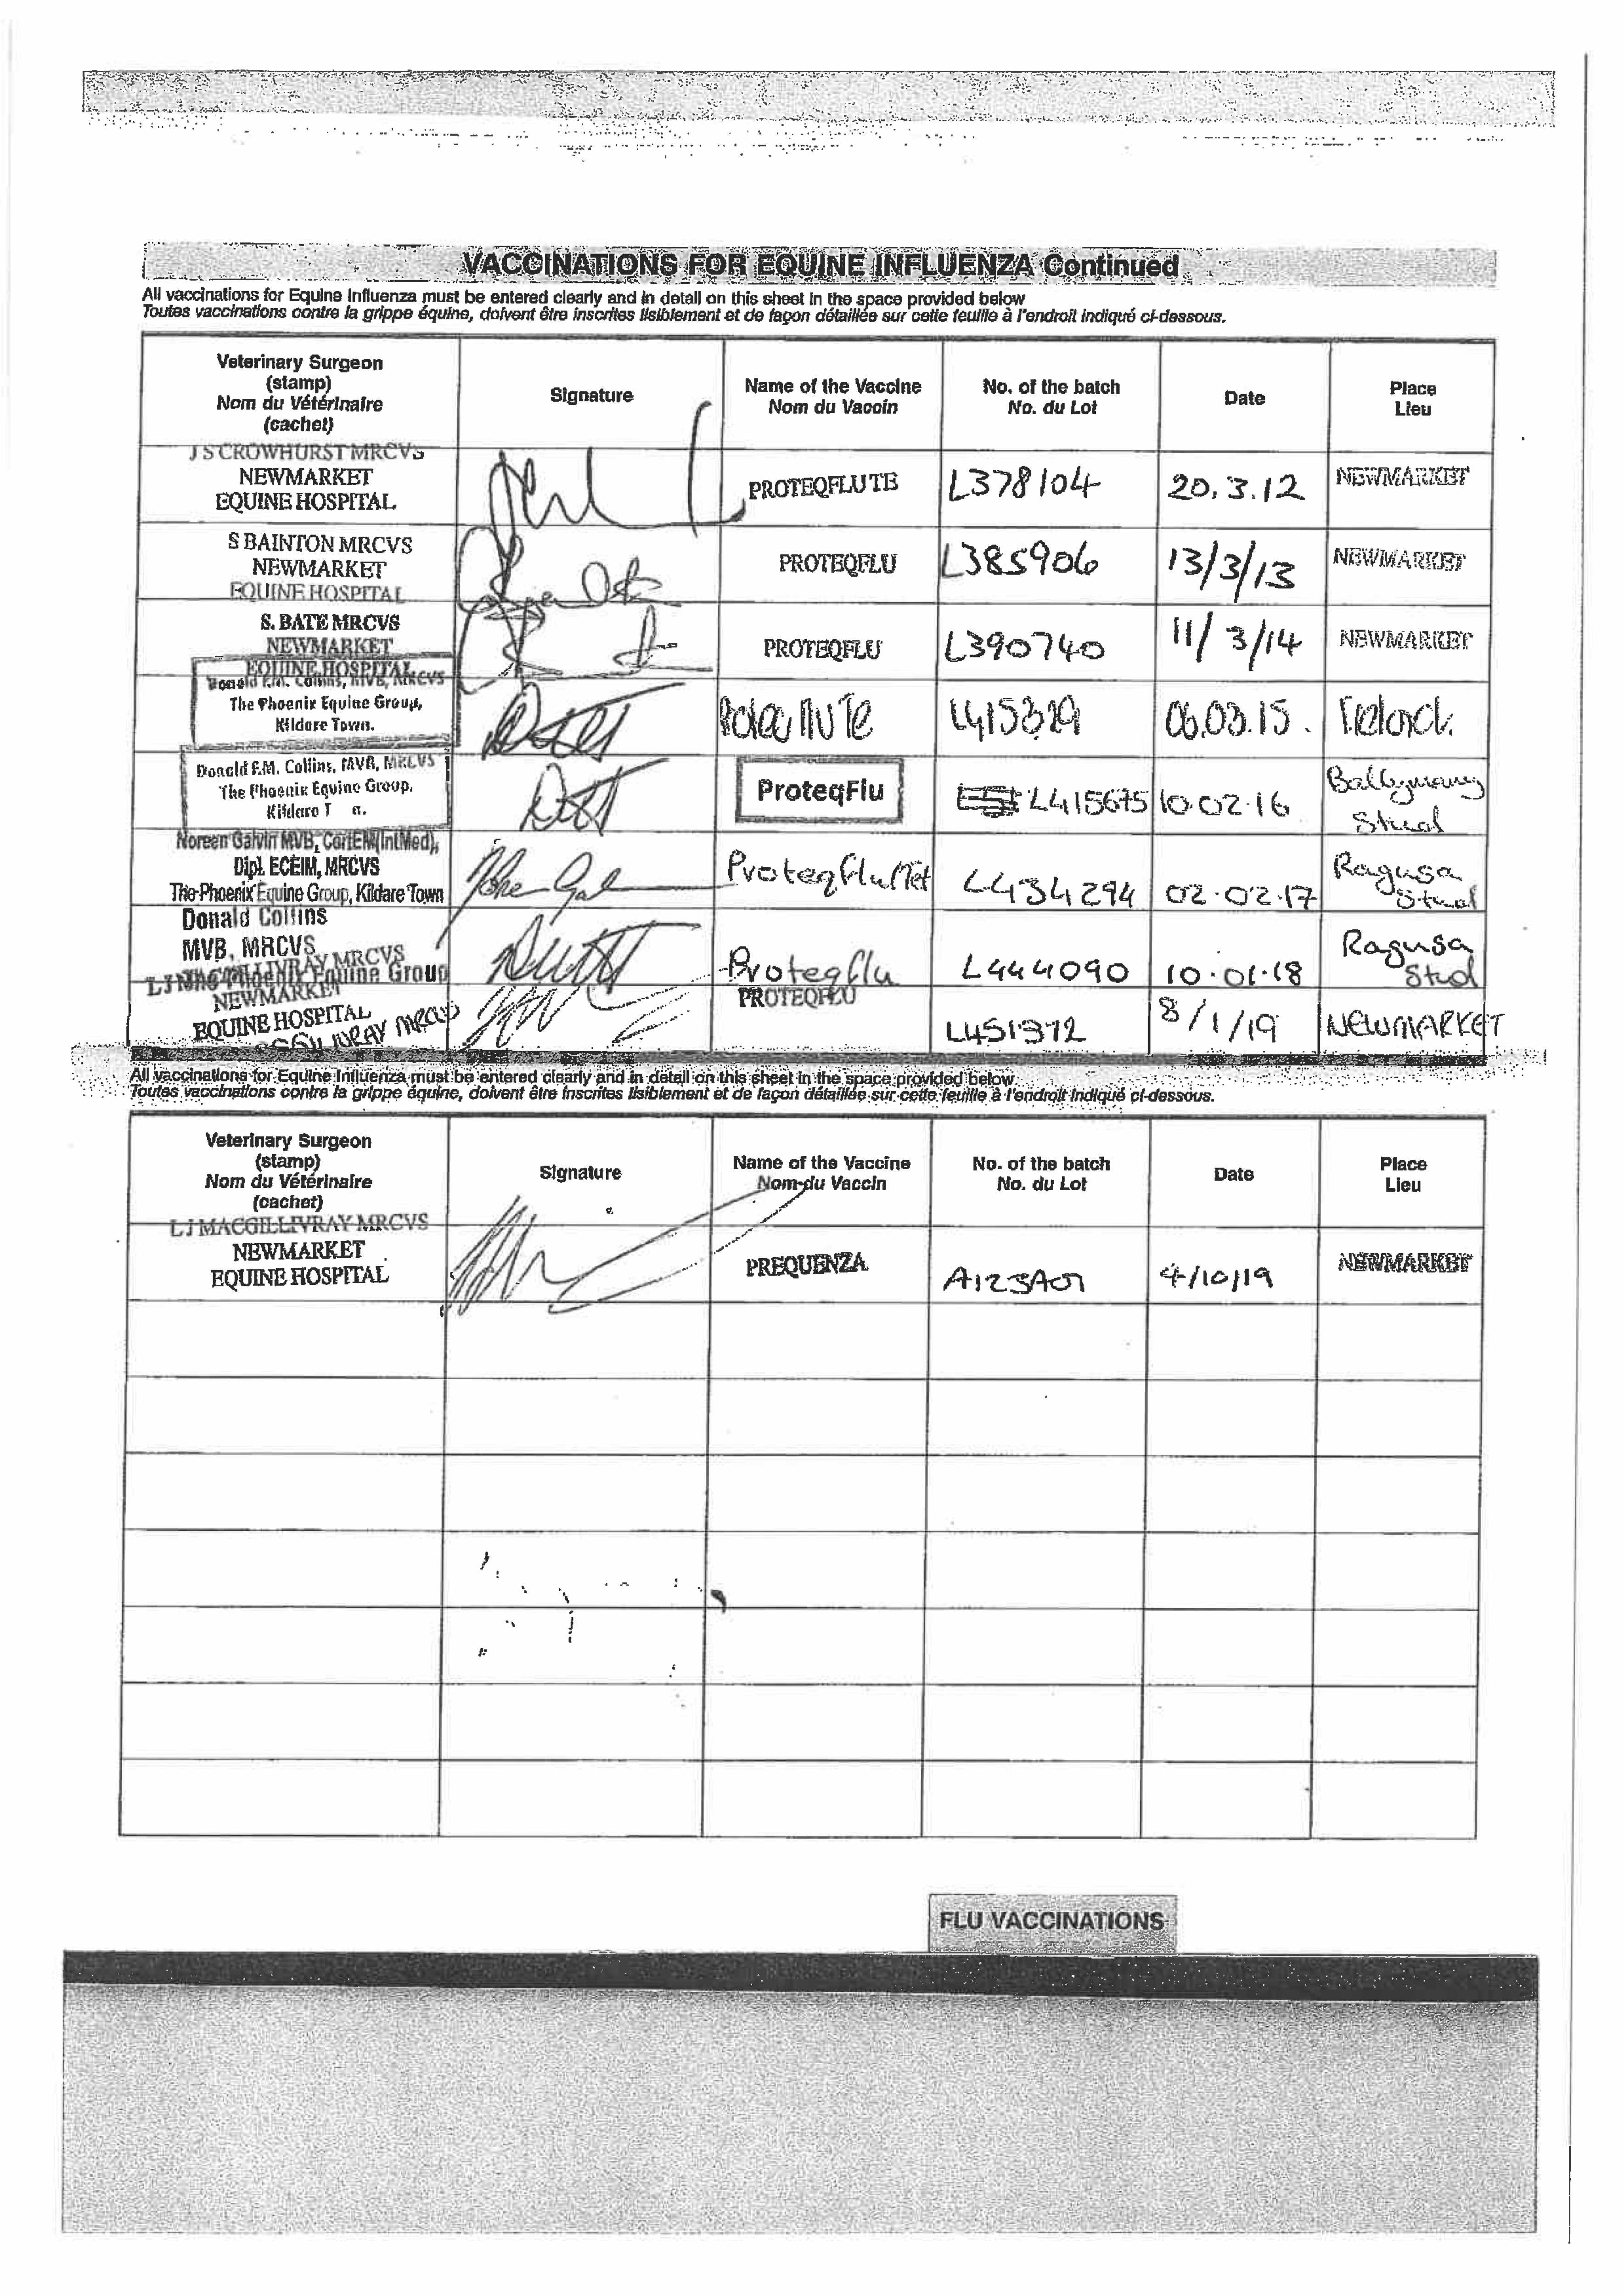 VACCINATIONS FOR EQUINE INFLUENZA Continued
All vaccinations for Equine Influenza must be entered clearly and in detail on this sheet in the space provided below
Toutes vaccinations contre la grippe équine, doivent être inscrites lisiblement et de façon détaillée sur cette feuille à l'endroit indiqué ci-dessous.
Veterinary Surgeon
(stamp)
Nom du Vétérinaire
(cachet)
Signature
Name of the Vaccine
Nom du Vaccin
No. of the batch
No. du Lot
Date
Place
Lieu
J S CROWHURST MRCVS
NEWMARKET
EQUINE HOSPITAL
PROTEQFLU TE
L378104
20.3.12
NEWMARKET
S BAINTON MRCVS
NEWMARKET
EQUINE HOSPITAL
PROTEQFLU
L385906
13/3/13
NEWMARKET
S. BATE MRCVS
NEWMARKET
EQUINE HOSPITAL
PROTEQFLU
L390740
11/3/14
NEWMARKET
Donald F.M. Collins, MVB, MRCVS
The Phoenix Equine Group,
Kildare Town.
06.03.15.
Ireland.
Donald F.M. Collins, MVB, MRCVS
The Phoenix Equine Group,
Kildare T n.
ProteqFlu
L415675
10.02.16
Ballymany
Stud
Noreen Galvin MVB, CertEM(IntMed),
Dipl. ECEIM, MRCVS
The Phoenix Equine Group, Kildare Town
Proteqflu/Tet
L434294
02.02.17
Ragusa
Stud
Donald Collins
MVB, MRCVS
The Phoenix Equine Group
Proteqflu
L444090
10.01.18
Ragusa
Stud
L J MACGILLIVRAY MRCVS
NEWMARKET
EQUINE HOSPITAL
MRCVS
PROTEQFLU
L451372
8/1/19
NEWMARKET
All vaccinations for Equine Influenza must be entered clearly and in detail on this sheet in the space provided below
Toutes vaccinations contre la grippe équine, doivent être inscrites lisiblement et de façon détaillée sur cette feuille à l'endroit indiqué ci-dessous.
Veterinary Surgeon
(stamp)
Nom du Vétérinaire
(cachet)
Signature
Name of the Vaccine
Nom du Vaccin
No. of the batch
No. du Lot
Date
Place
Lieu
L J MACGILLIVRAY MRCVS
NEWMARKET
EQUINE HOSPITAL
PREQUENZA
A123A01
4/10/19
NEWMARKET
FLU VACCINATIONS